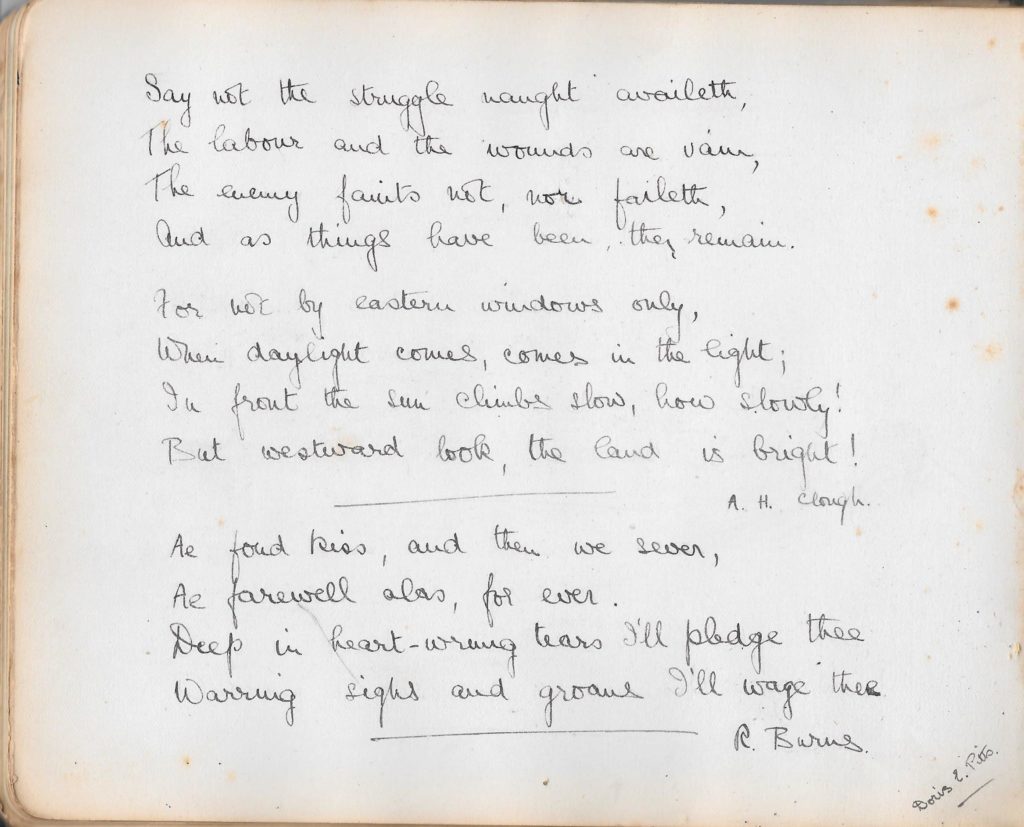 Say not the struggle naught availeth,
The labour and the wounds are vain,
The enemy faints not, nor faileth,
And as things have been, they remain.
For not by eastern windows only,
When daylight comes, comes in the light;
In front the sun climbs slow, how slowly!
But westward look, the land is bright!
A. H. Clough.
Ae fond kiss, and then we sever,
Ae farewell alas, for ever.
Deep in heart-wrung tears I'll pledge thee
Warring sighs and groans I'll wage thee
R. Burns.
Doris E. Pitts.